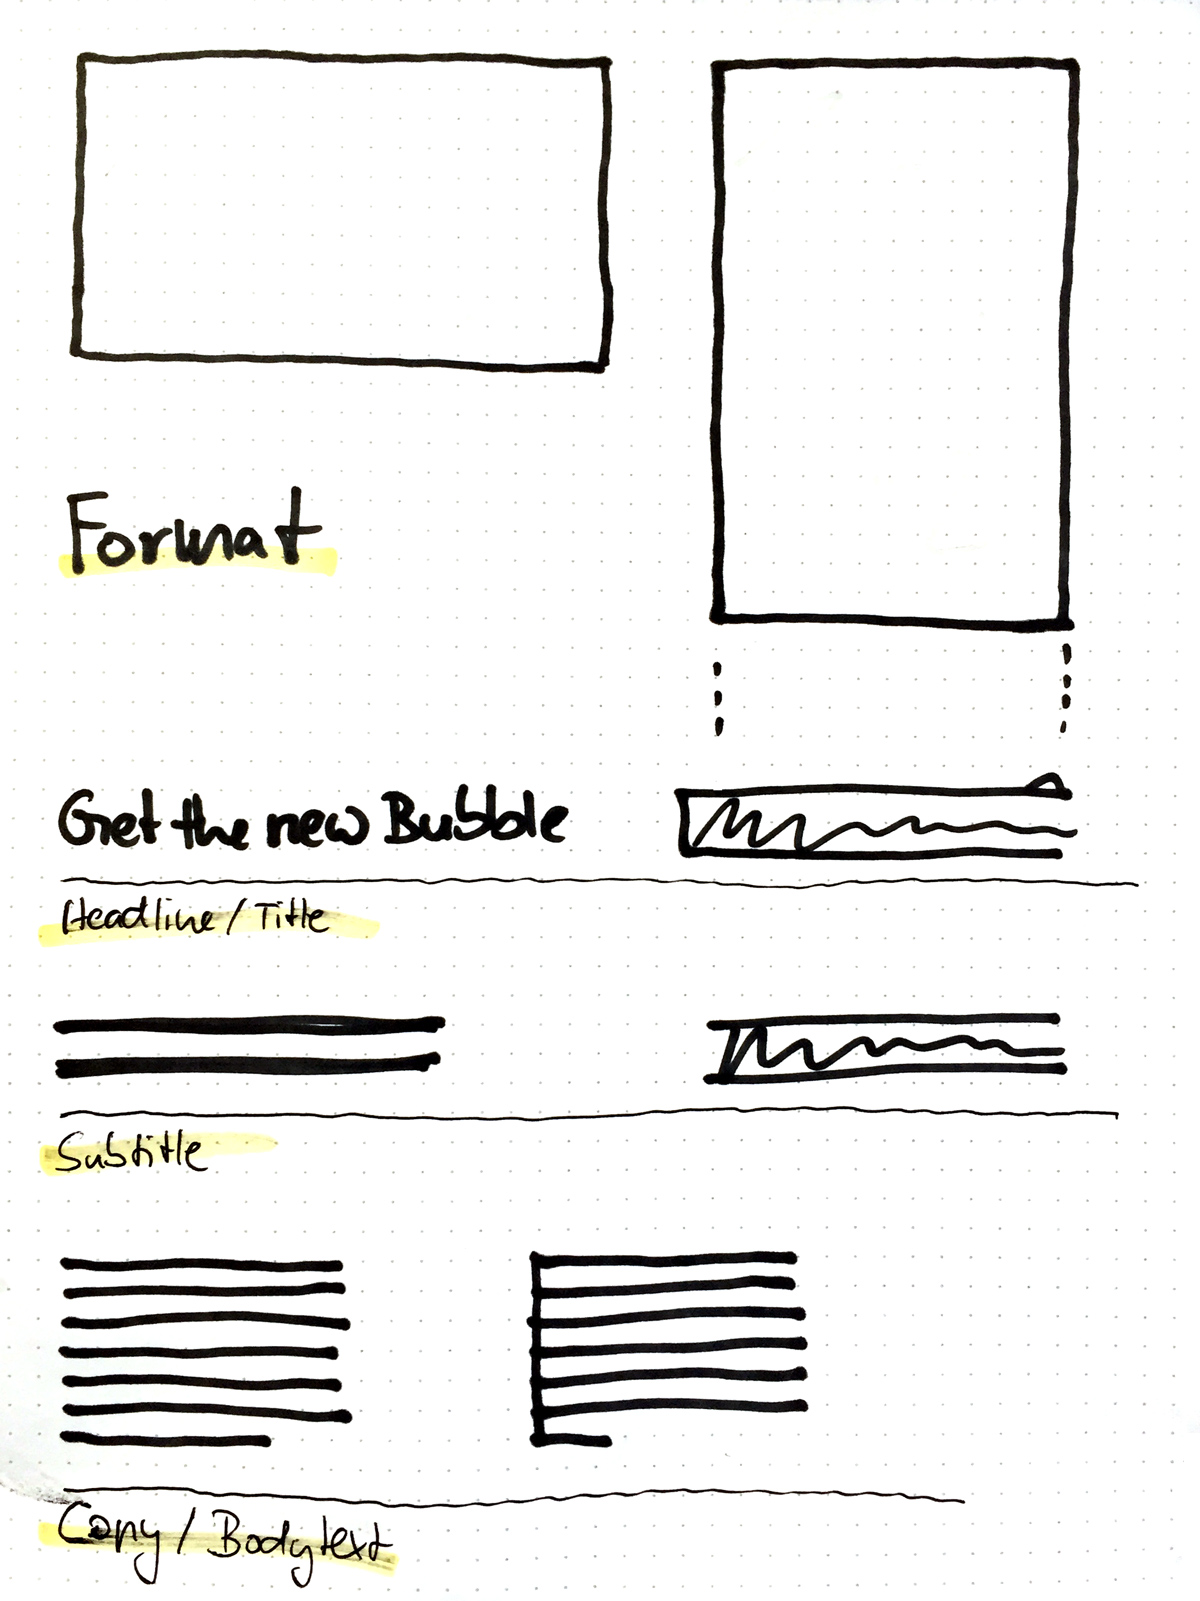 Format
Get the new Bubble
Headline / Title
Subtitle
Copy / Bodytext